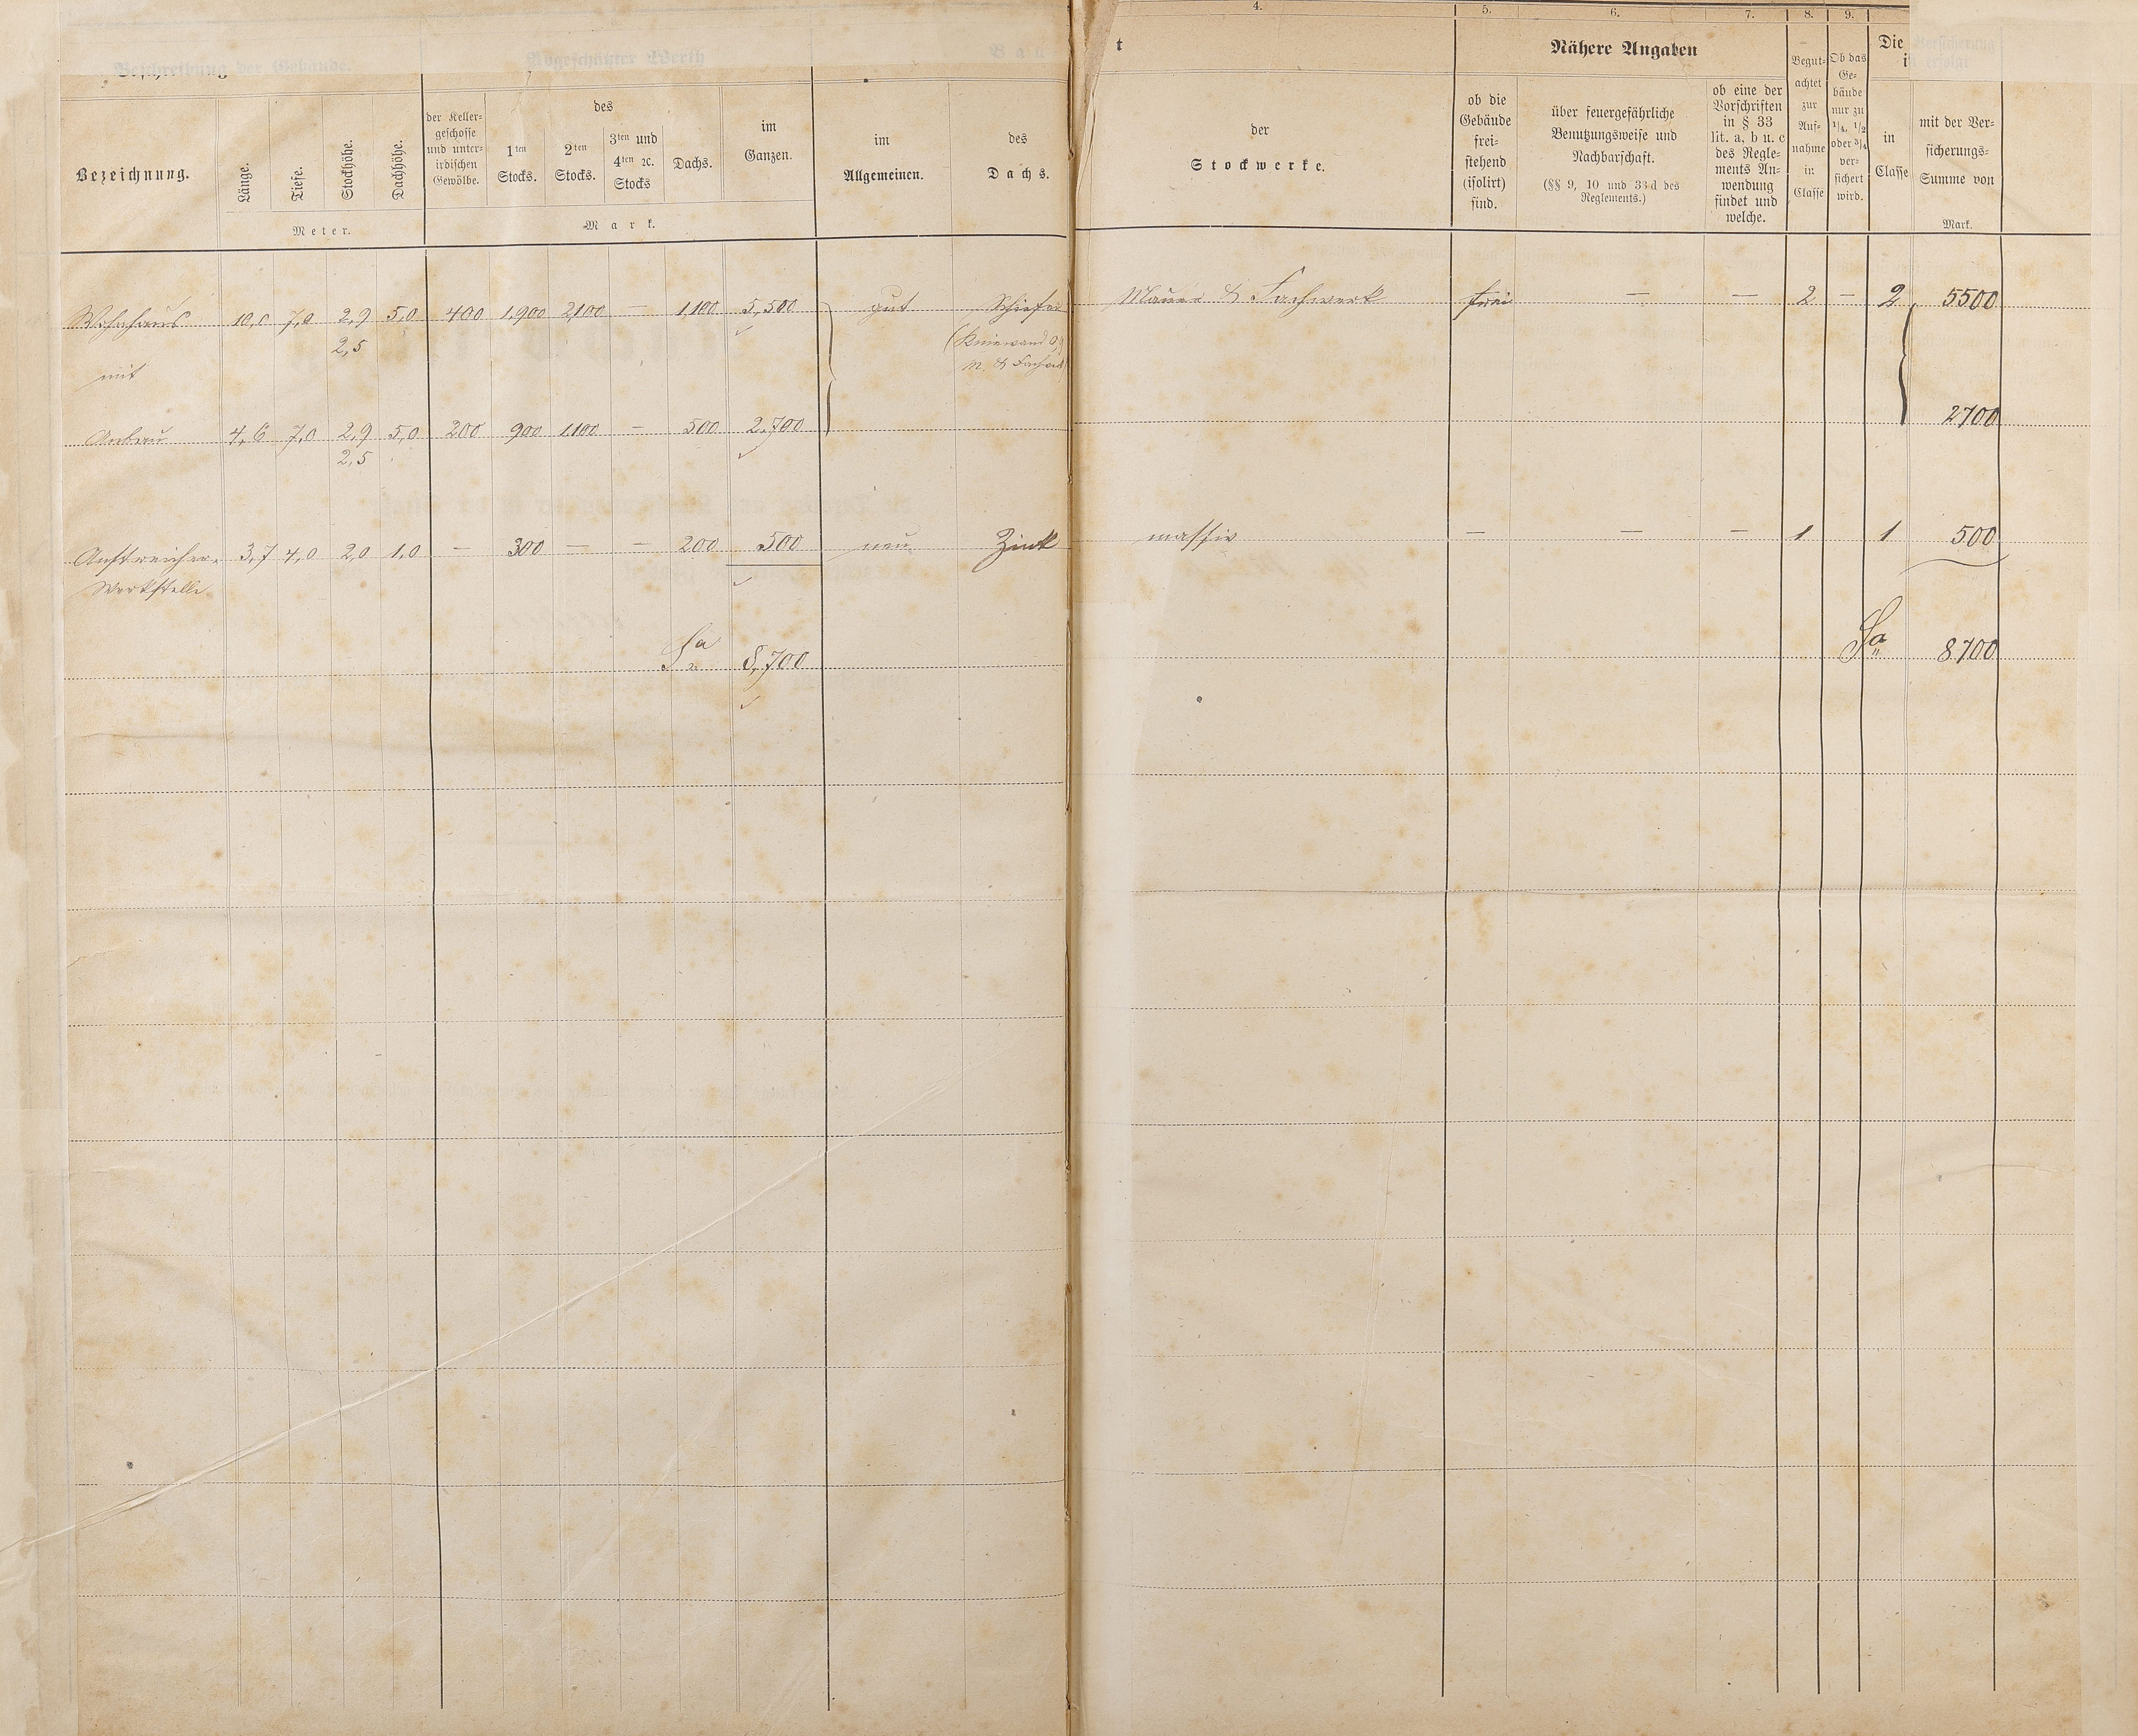 Beschreibung der Gebäude. Abgeschätzter Werth Bau-
t Nähere Angaben Die Versicherung
in erfolgt
4. 5. 6. 7. 8. 9.
Bezeichnung. Länge. Tiefe. Stockhöhe. Dachhöhe.
Meter.
der Keller-
geschosse
und unter-
irdischen
Gewölbe.
des
1ten
Stocks.
2ten
Stocks.
3ten und
4ten ꝛc.
Stocks
Dachs.
im
Ganzen.
Mark.
im
Allgemeinen.
des
Dachs.
der
Stockwerke.
ob die
Gebäude
frei-
stehend
(isolirt)
sind.
über feuergefährliche
Benutzungsweise und
Nachbarschaft.
(§§ 9, 10 und 33 d des
Reglements.)
ob eine der
Vorschriften
in § 33
lit. a, b u. c
des Regle-
ments An-
wendung
findet und
welche.
Begut-
achtet
zur
Auf-
nahme
in
Classe
Ob das
Ge-
bäude
nur zu
1/4, 1/2
oder 3/4
ver-
sichert
wird.
in
Classe
mit der Ver-
sicherungs-
Summe von
Mark.
Wohnhaus 10,0 7,0 2,9 5,0 400 1,900 2,100 — 1,100 5,500 gut Schiefer Mauer & Fachwerk frei — — 2 — 2 5500
2,5 (Kniewand 0,9
mit M. & Fachwerk)
Anbau 4,6 7,0 2,9 5,0 200 900 1,100 — 500 2,700 2700
2,5
Anstreicher- 3,7 4,0 2,0 1,0 — 300 — — 200 500 neu Zink massiv — — — 1 1 500
Werkstelle
Sa 8,700 Sa 8700